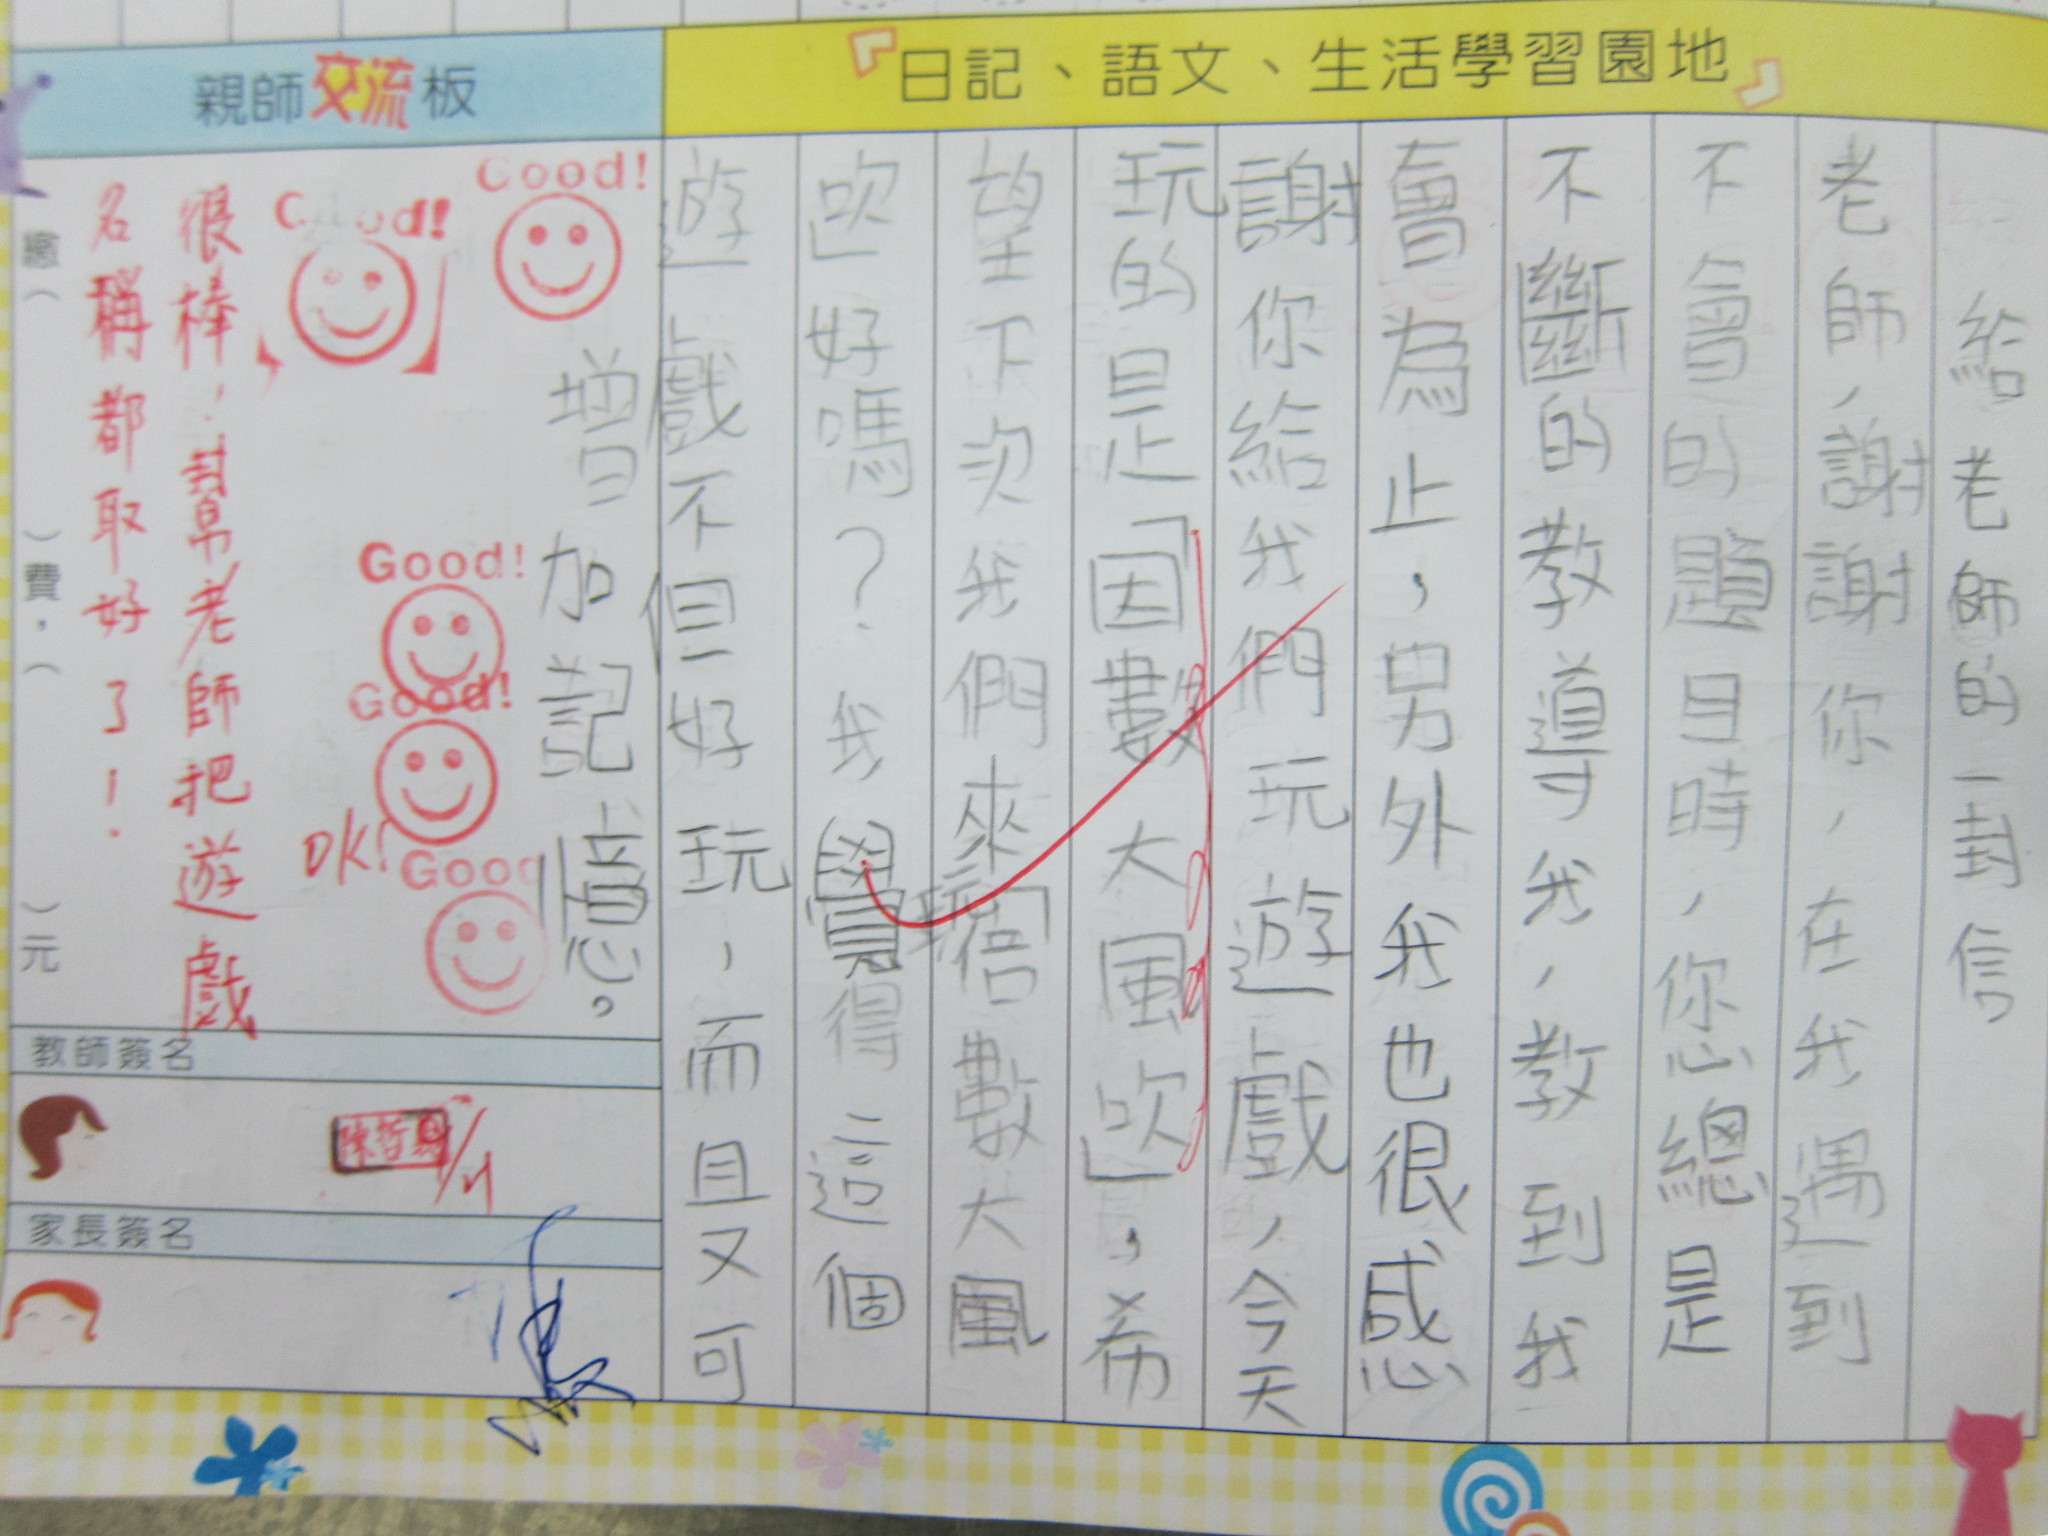 親師交流板
『日記、語文、生活學習園地』
給老師的一封信
老師,謝謝你,在我遇到
不會的題目時,您總是
不斷的教導我,教到我
會為止,另外我也很感
謝你給我們玩遊戲,今天
玩的是「因數大風吹」,希
望下次我們來玩「倍數大風
吹」好嗎?我覺得這個
遊戲不但好玩,而且又可
增加記憶。
Good!
Good!
Good!
Good!
Good
OK!
很棒,幫老師把遊戲
名稱都取好了!
繳( )費,( )元
教師簽名
家長簽名